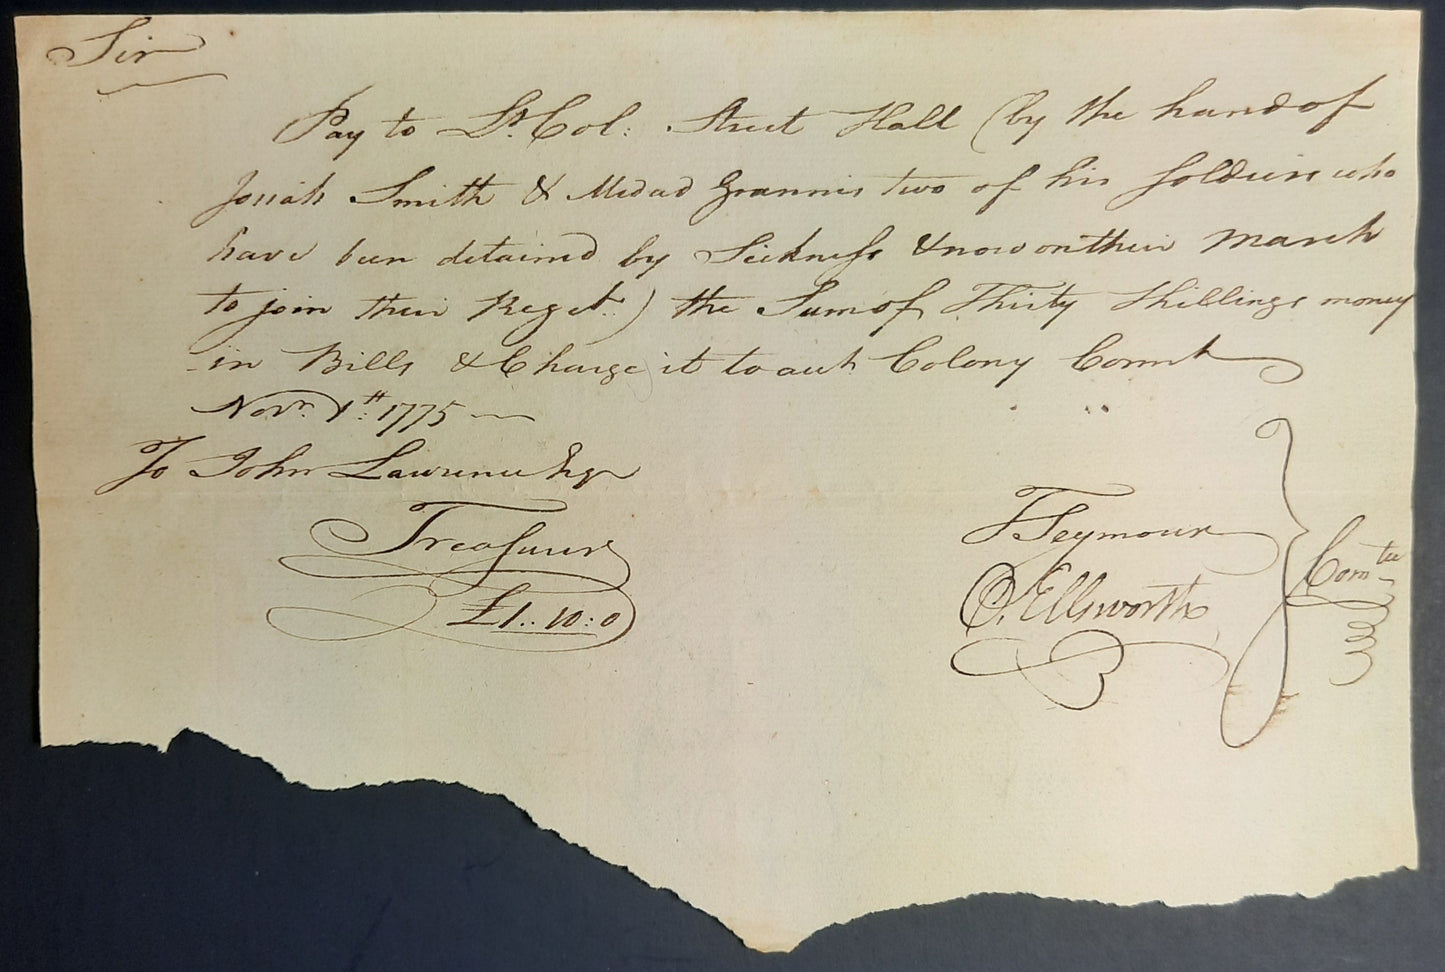 Sir
Pay to Lt. Col: Street Hall (by the hand of
Josiah Smith & Medad Grannis two of his Soldiers who
have been detained by Sickness & now on their march
to join their Reget.) the Sum of Thirty Shillings money
in Bills & Charge it to act. Colony Comt
Novr. 1st. 1775
To John Lawrence Esqr
Treasurer
£1..10:0
T Seymour
O. Ellsworth
Comtee